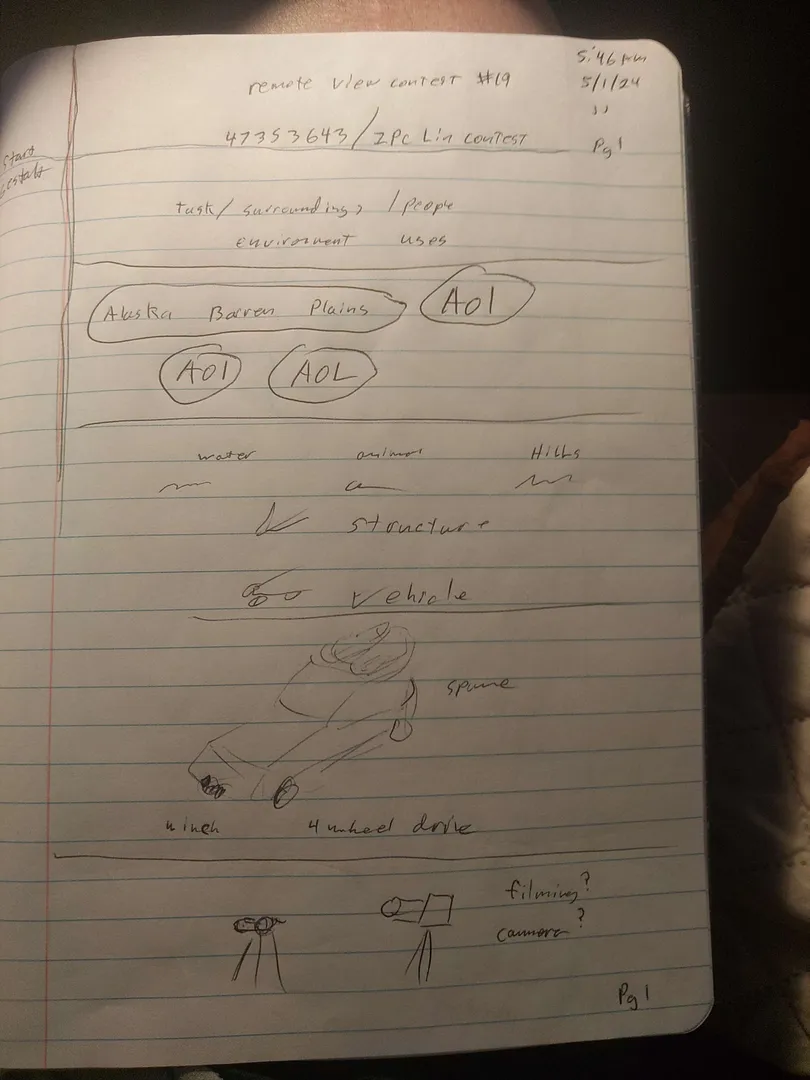 remote view contest #19
5:46 pm
5/1/24
JJ
Pg 1
47353643/IPC Lin contest
start
gestalt
task/ surroundings / people
environment uses
Alaska Barren Plains AOL
AOL AOL
water animal Hills
structure
vehicle
4 wheel drive
filming?
cammera?
Pg 1